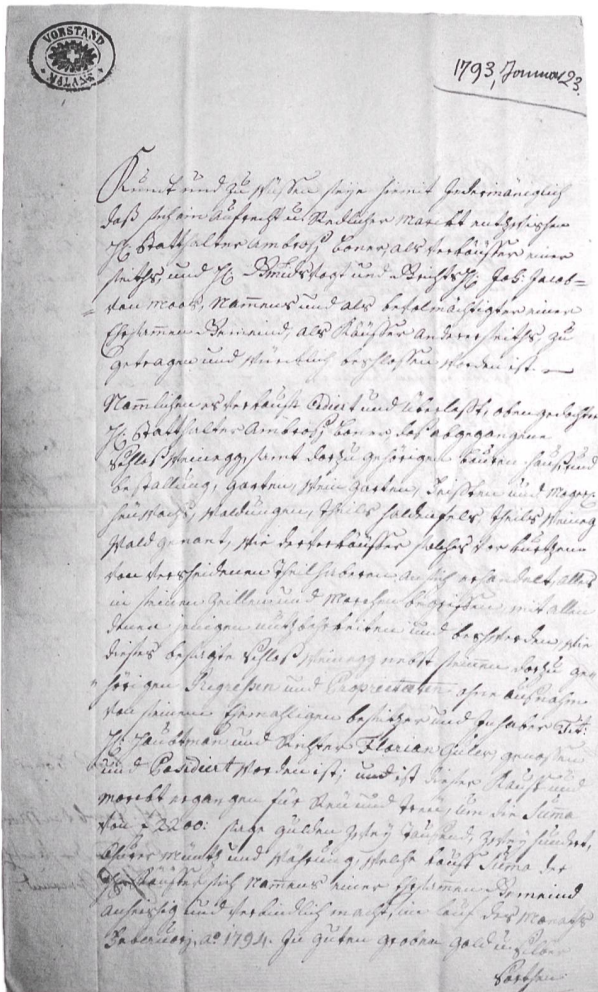 VORSTAND
MALANS
1793, Januar 23.
Kundt und zu wüssen seye hiermit Jedermäniglich
daß sich ein aufrecht u: Redlicher Marckt entzwischen
H: Statthalter Ambrosj Boner, als verkäuffer einer
seiths, und H: Bundsvogt und H: Joh: Jacob
von Moos, Nammens und als befolmächtigter einer
Ehrsammen Gemeind, als Käuffer anderseiths, zu
getragen und würcklich beschlossen worden ist. —
Nammlichen es verkauft Cediert und überlasst, oben gedachter
H: Statthalter Ambrosj Boner, das abgegangene
Schloß Weinegg, samt darzu gehörigen bauten hauß und
bestallung, garten, Wein garten, und Mager
heüwachs, Waldungen, theils haldenfels, theils Weineg
Wald genant, wie der verkäuffer solches vor kurtzem
von verscheidenen Theilhaberen an sich erhandelt, alles
in seinen Zillen und Marchen begriffen, mit allen
denen jenigen nutzbahrkeiten und beschwerden, wie
dieses besagte Schloß Weinegg nebst seinen darzu ge
hörigen Regressen und ohne ausnahm
von seinem Ehemahligen besitzer und Inhaber Tit:
H: Haubtman und Richter Florian Guler, genossen
und Possidiert worden ist; und ist dieser Kauf und
marckt ergangen für Neü und treü, um die Suma
von f 2200: sage gulden Zwey Tausend, Zwey hundert,
Churer Müntz und Währung, welche kauff Suma der
H: Käuffer sich Nammens einer Ehrsammen Gemeind
anheischig und verbindlich macht, im lauf des Monats
Februarj, aº 1794. In guten groben gold u: Silber
Sorthen